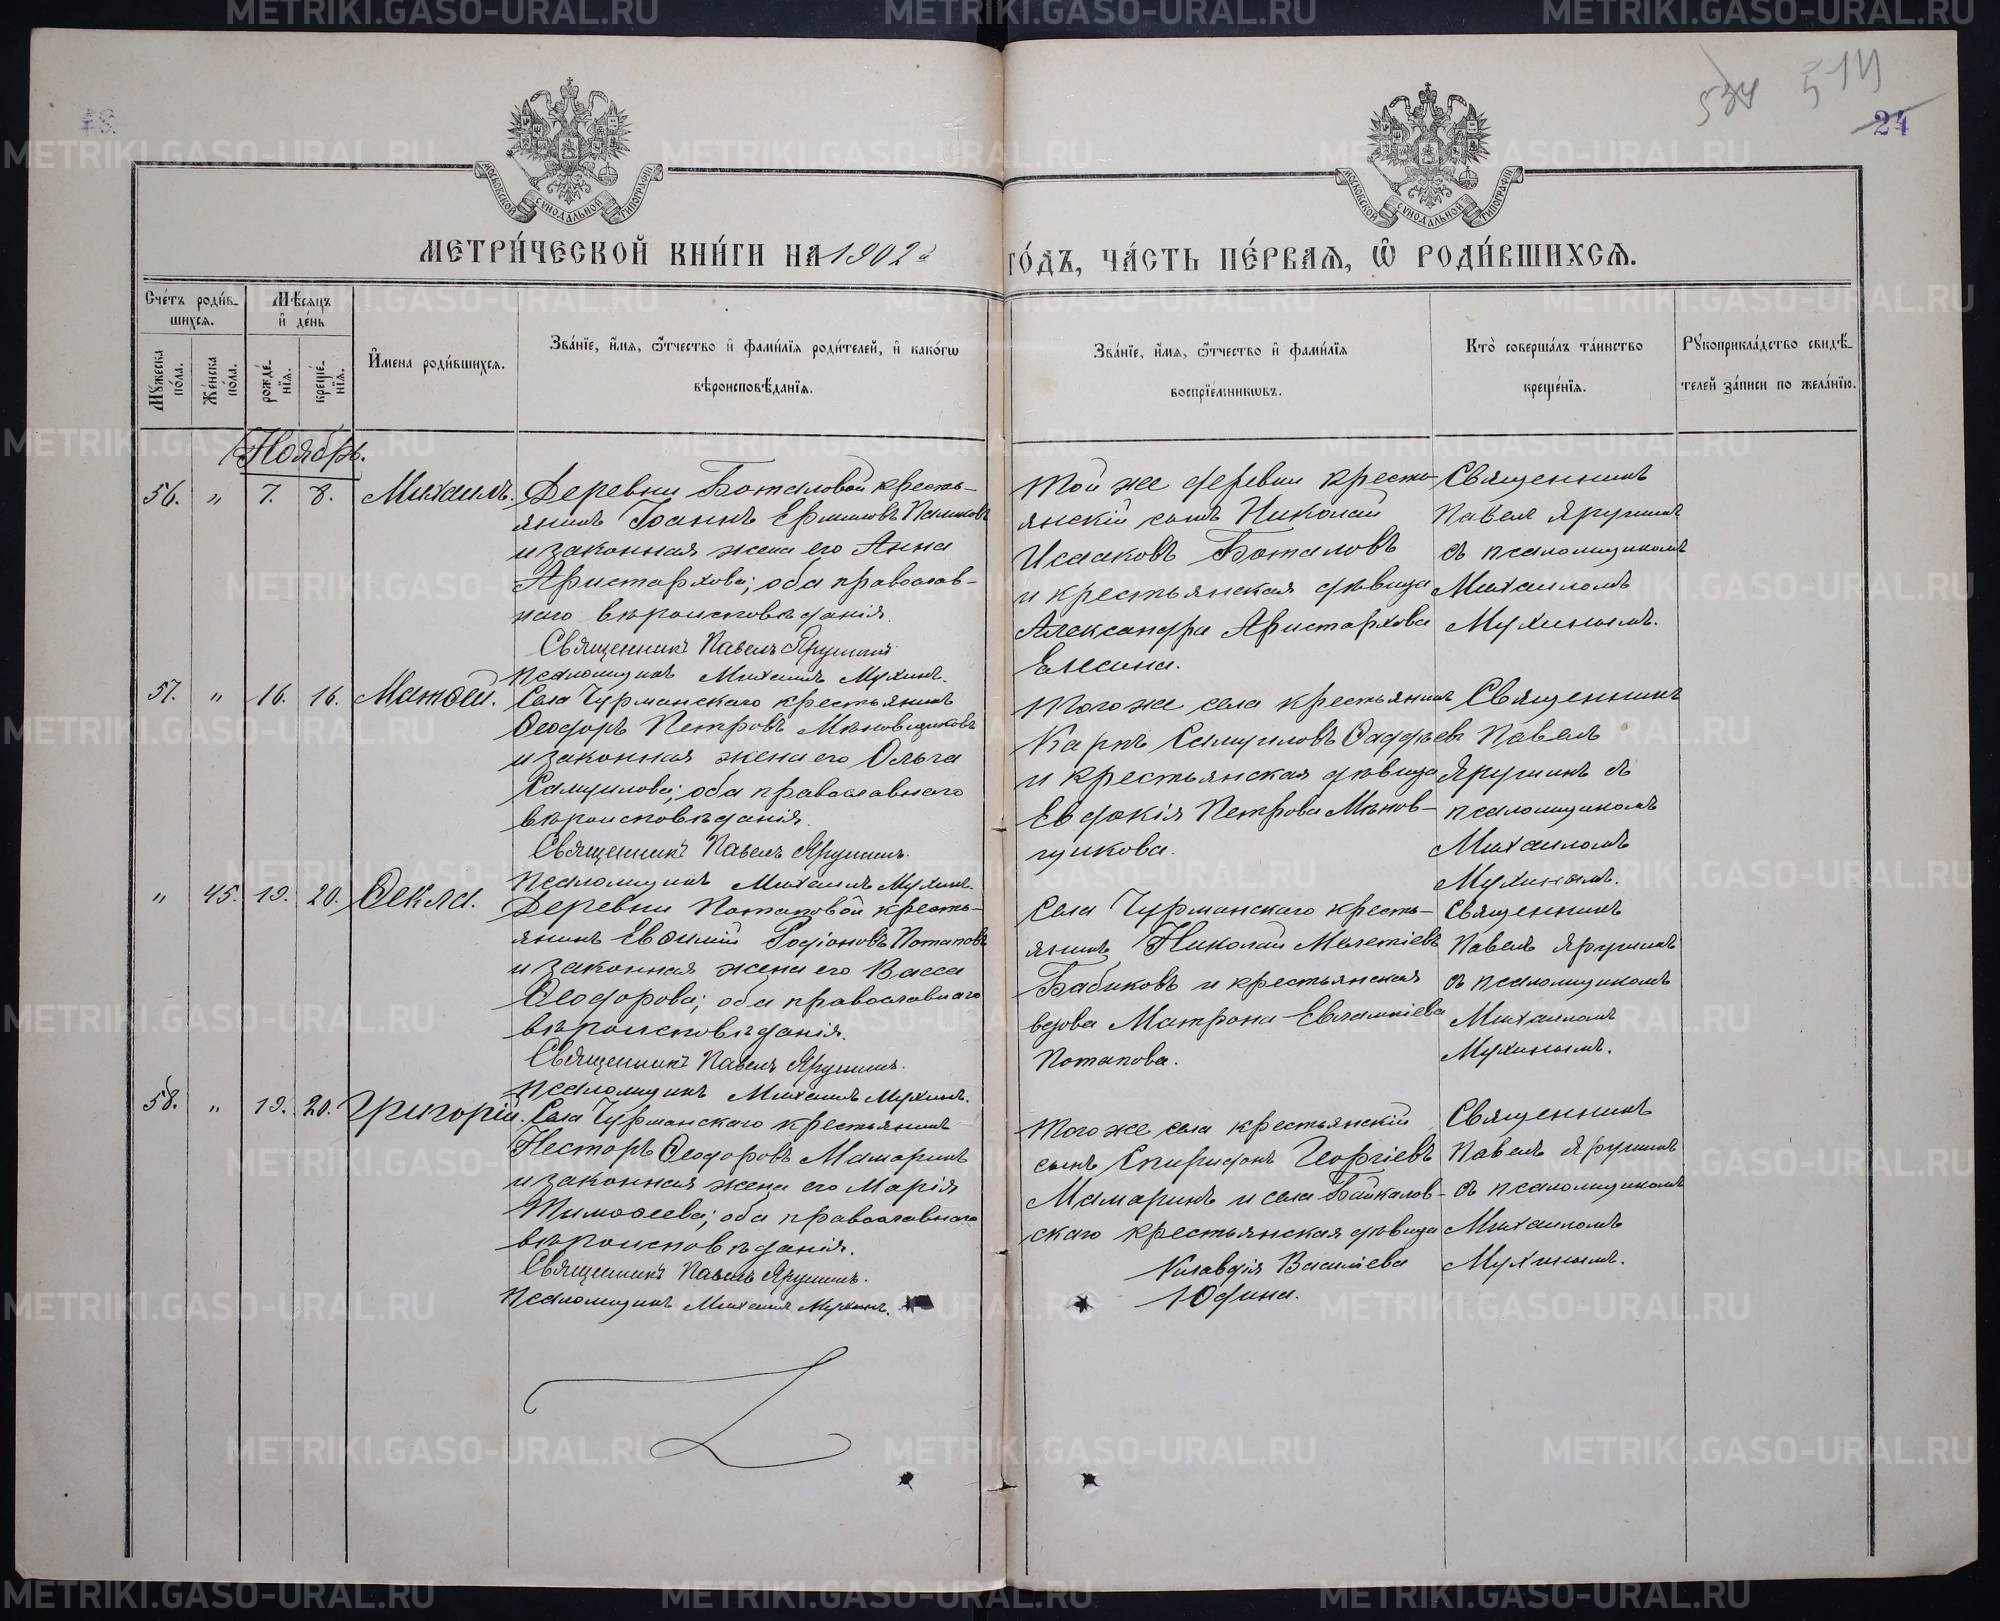 METRIKI.GASO-URAL.RU
534 514
24
МОСКОВСКОЙ СѴНОДАЛЬНОЙ ТИПОГРАФІИ
МОСКОВСКОЙ СѴНОДАЛЬНОЙ ТИПОГРАФІИ
МЕТРИ́ЧЕСКОЙ КНИ́ГИ НА 1902й ГО́ДЪ, ЧА́СТЬ ПЕ́РВАѦ, Ѡ҆ РОДИ́ВШИХСѦ.
Сче́тъ роди́в-
шихсѧ.
Мѣ́сѧцъ
и҆ де́нь
Мꙋ́жеска по́ла.
Же́нска по́ла.
рожде́-
нїѧ.
креще́-
нїѧ.
И҆мена роди́вшихсѧ.
Зва́нїе, и҆́мѧ, ѻ҆́тчество и҆ фами́лїѧ роди́телей, и҆ како́гѡ
вѣроисповѣ́данїѧ.
Зва́нїе, и҆́мѧ, ѻ҆́тчество и҆ фами́лїѧ
воспрїе́мникѡвъ.
Кто̀ соверша́лъ та́инство
креще́нїѧ.
Рꙋкоприкла́дство свидѣ́-
телей за́писи по жела́нїю.
Ноябрь.
56. „ 7. 8. Михаилъ.
Деревни Боталовой кресть-
янинъ Іоаннъ Ермиловъ
и законная жена его Анна
Аристархова; оба православ-
наго вѣроисповѣданія.
Священникъ Павелъ Ярушинъ
Псаломщикъ Михаилъ Мухинъ.
Той же деревни кресть-
янскій сынъ Николай
Исааковъ Боталовъ
и крестьянская дѣвица
Александра Аристархова
Елесина.
Священникъ
Павелъ Ярушинъ
съ псаломщикомъ
Михаиломъ
Мухинымъ.
57. „ 16. 16. Матѳей.
Села Чурманскаго крестьянинъ
Ѳеодоръ Петровъ Мѣновщиковъ
и законная жена его Ольга
Самуилова; оба православнаго
вѣроисповѣданія.
Священникъ Павелъ Ярушинъ.
Псаломщикъ Михаилъ Мухинъ.
Того же села крестьянинъ
Карпъ Самуиловъ Ѳаддѣевъ
и крестьянская дѣвица
Евдокія Петрова Мѣнов-
щикова.
Священникъ
Павелъ
Ярушинъ съ
псаломщикомъ
Михаиломъ
Мухинымъ.
„ 45. 19. 20. Ѳекла.
Деревни Потаповой кресть-
янинъ Евѳимій Родіоновъ Потаповъ
и законная жена его Васса
Ѳеодорова; оба православнаго
вѣроисповѣданія.
Священникъ Павелъ Ярушинъ.
Псаломщикъ Михаилъ Мухинъ.
Села Чурманскаго кресть-
янинъ Николай Мелетіевъ
Бабиковъ и крестьянская
вдова Матрона Евлампіева
Потапова.
Священникъ
Павелъ Ярушинъ
съ псаломщикомъ
Михаиломъ
Мухинымъ.
58. „ 19. 20. Григорій.
Села Чурманскаго крестьянинъ
Несторъ Ѳеодоровъ Мамаринъ
и законная жена его Марія
Тимоѳеева; оба православнаго
вѣроисповѣданія.
Священникъ Павелъ Ярушинъ.
Псаломщикъ Михаилъ Мухинъ.
Того же села крестьянскій
сынъ Спиридонъ Георгіевъ
Мамаринъ и села Байкалов-
скаго крестьянская дѣвица
Клавдія Василіева
Юдина.
Священникъ
Павелъ Ярушинъ
съ псаломщикомъ
Михаиломъ
Мухинымъ.